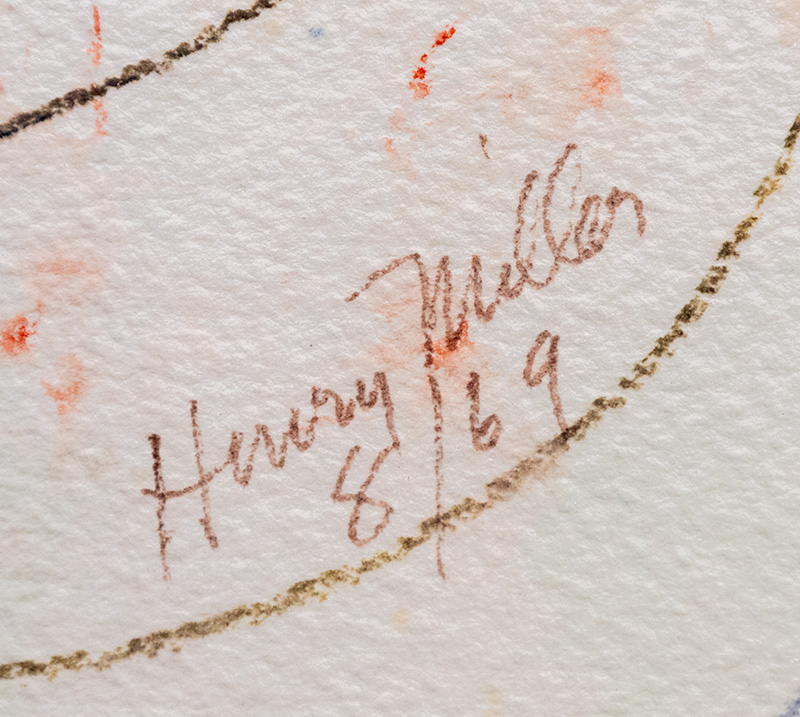 Henry Miller
8/69